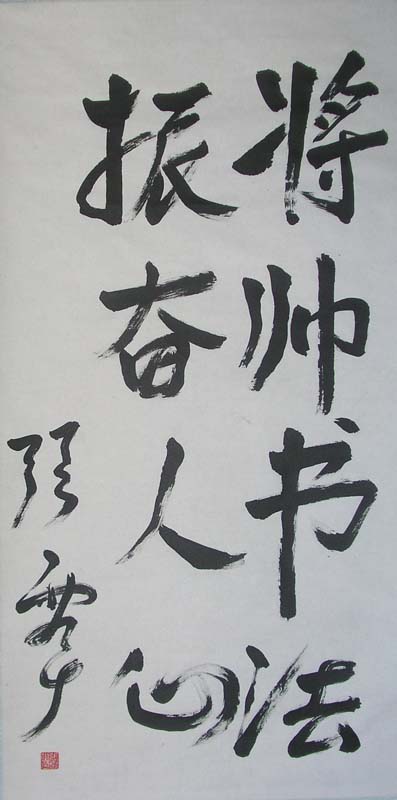 将帅书法
振奋人心
张